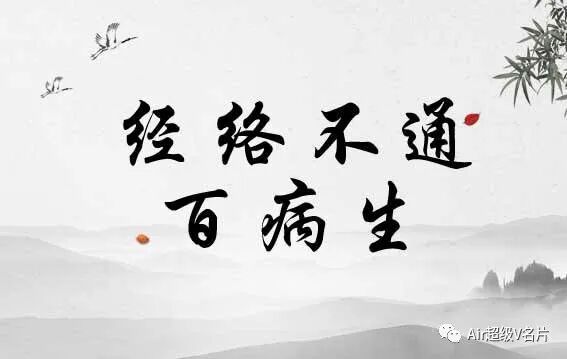 经络不通
百病生
Air超级V名片